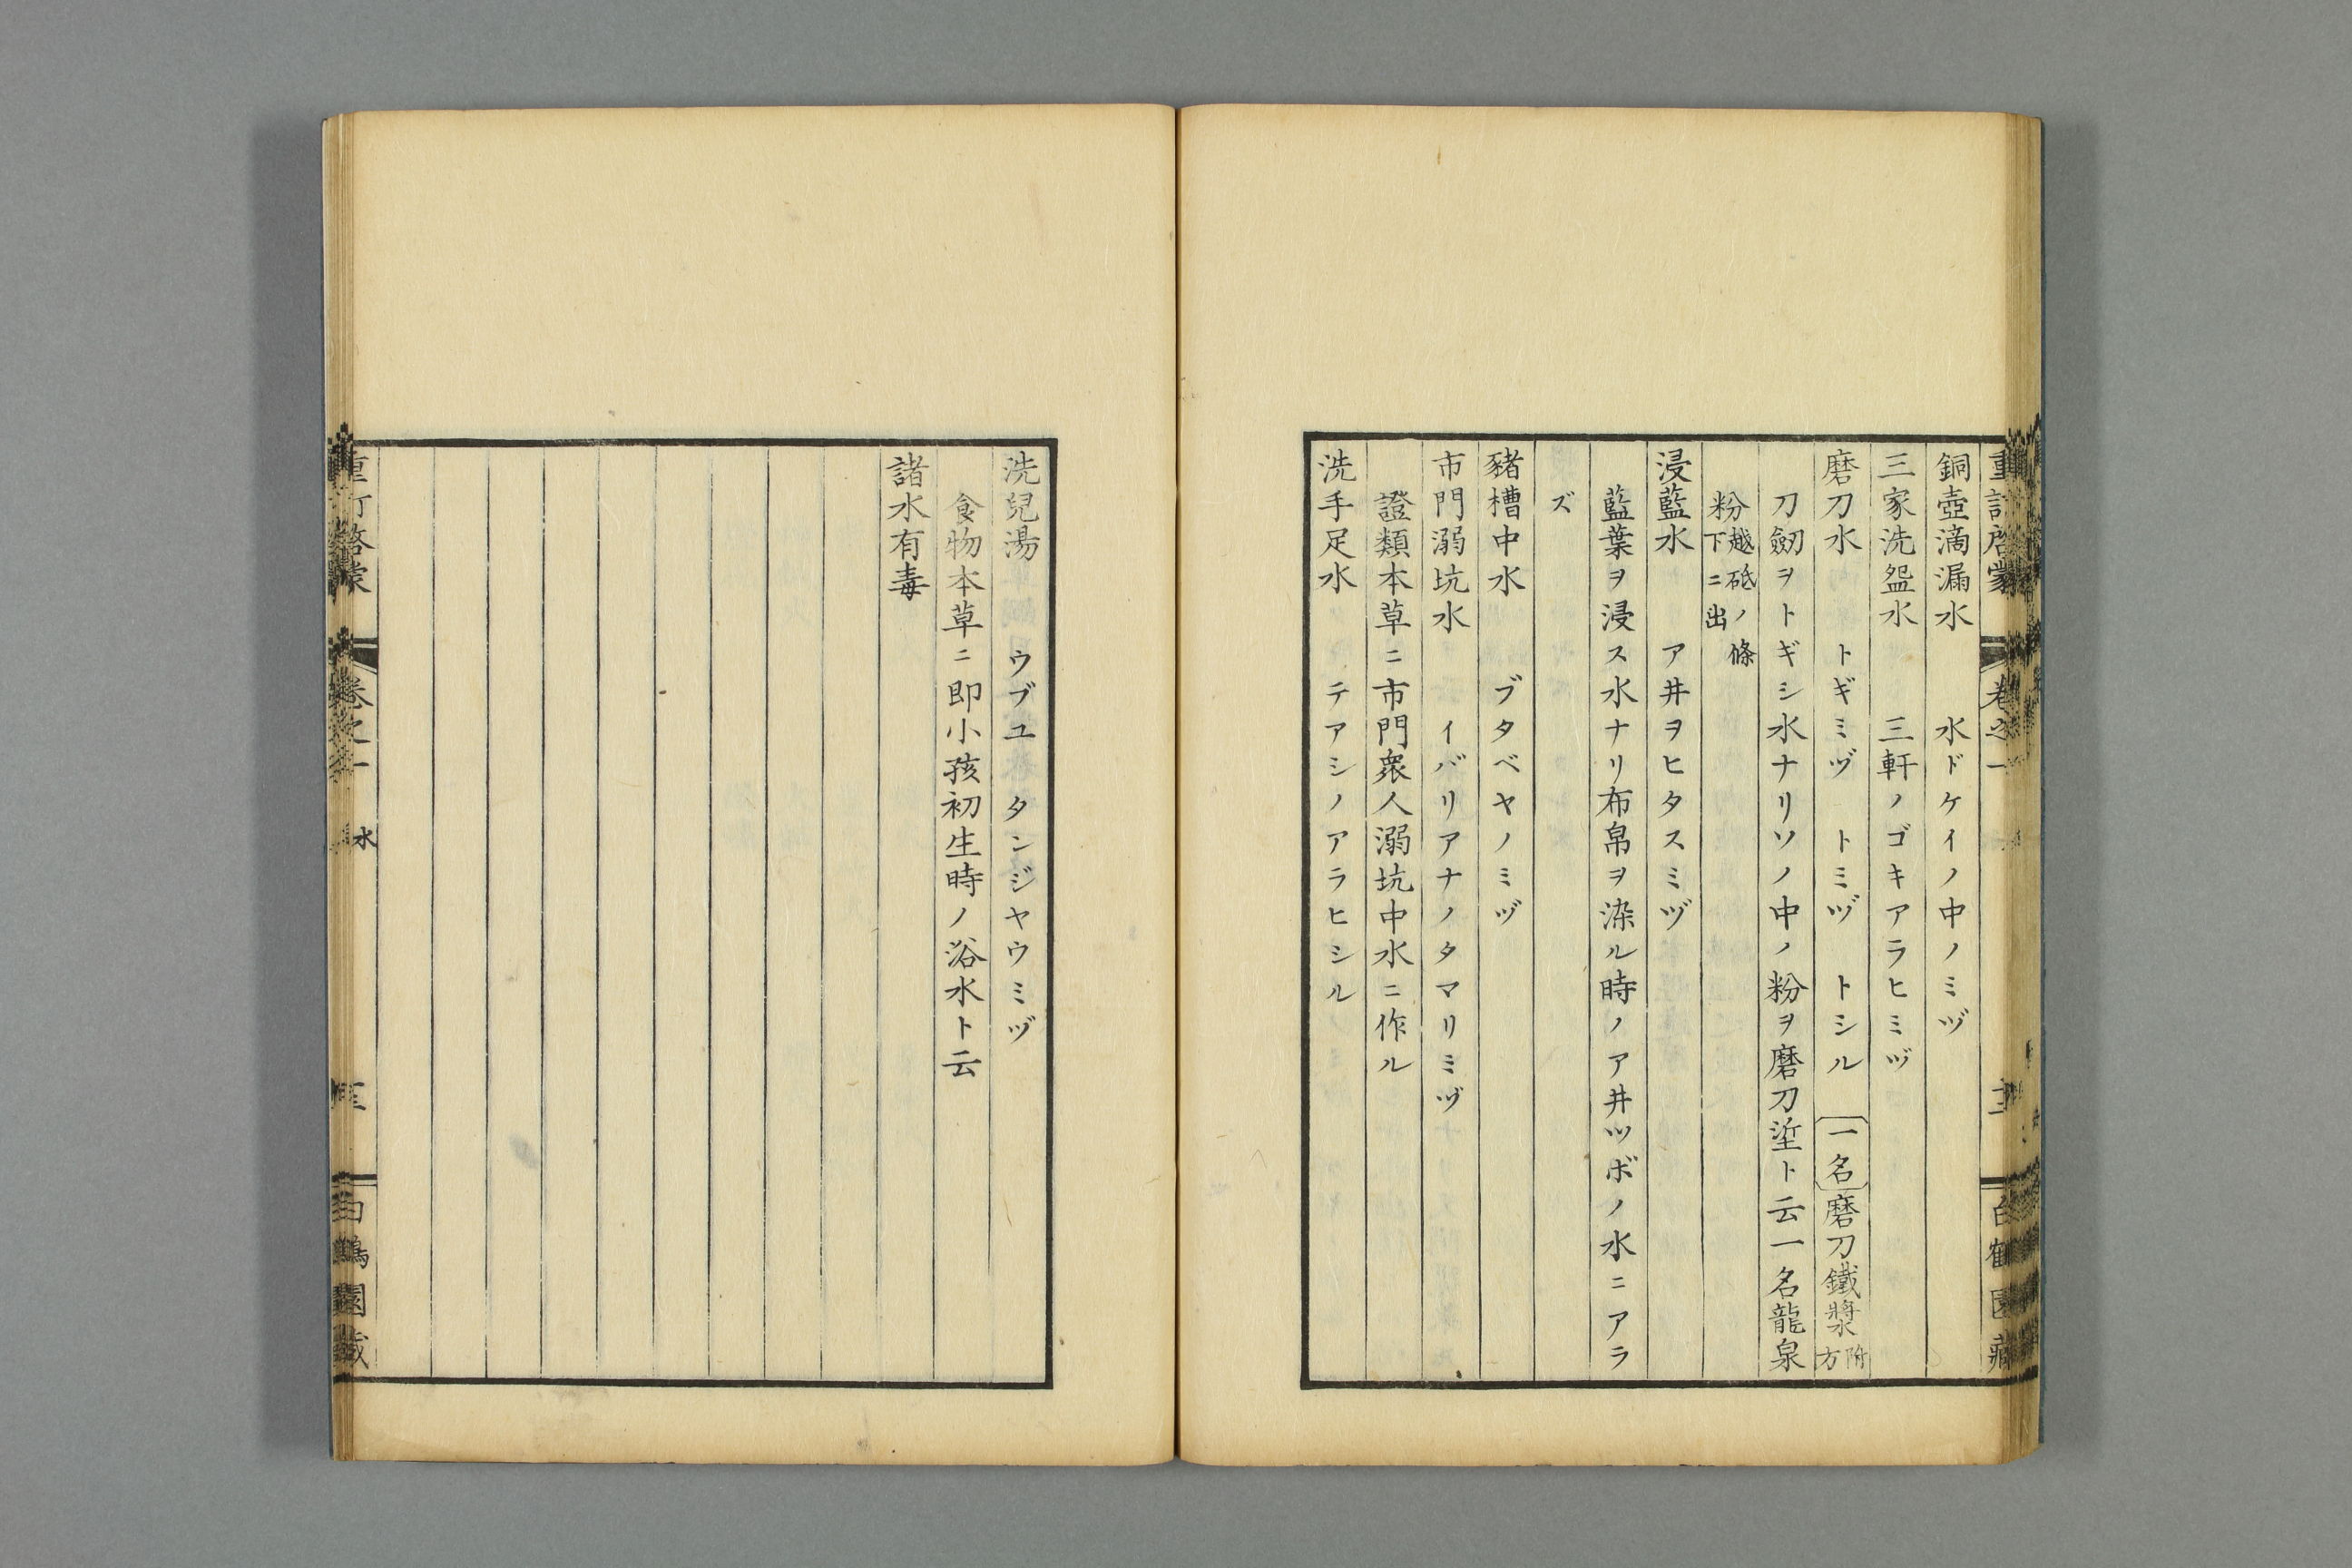 銅壺滴漏水　　水ドケイノ中ノミヅ
三家洗盌水　　三軒ノゴキアラヒミヅ
磨刀水　　トギミヅ　トミヅ　トシル　〔一名〕磨刀鐵漿附方
刀劒ヲトギシ水ナリソノ中ノ粉ヲ磨刀埿ト云一名龍泉
粉越砥ノ條下ニ出
浸藍水　　ア井ヲヒタスミヅ
藍葉ヲ浸ス水ナリ布帛ヲ染ル時ノア井ツボノ水ニアラ
ズ
豬槽中水　　ブタベヤノミヅ
市門溺坑水　　イバリアナノタマリミヅ
證類本草ニ市門衆人溺坑中水ニ作ル
洗手足水　　テアシノアラヒシル
洗兒湯　　ウブユ　タンジヤウミヅ
食物本草ニ即小孩初生時ノ浴水ト云
諸水有毒
水